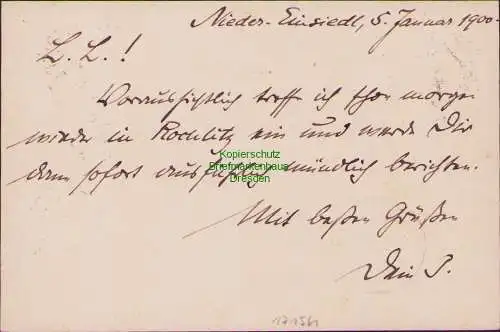 Nieder-Einsiedl, 5. Januar 1900.
L. L.!
Voraussichtlich treffe ich schon morgen
wieder in Rochlitz ein und werde Dir
dann sofort ausführlich mündlich berichten.
Kopierschutz
Briefmarkenhaus
Dresden
Mit besten Grüßen
Dein J.
171561